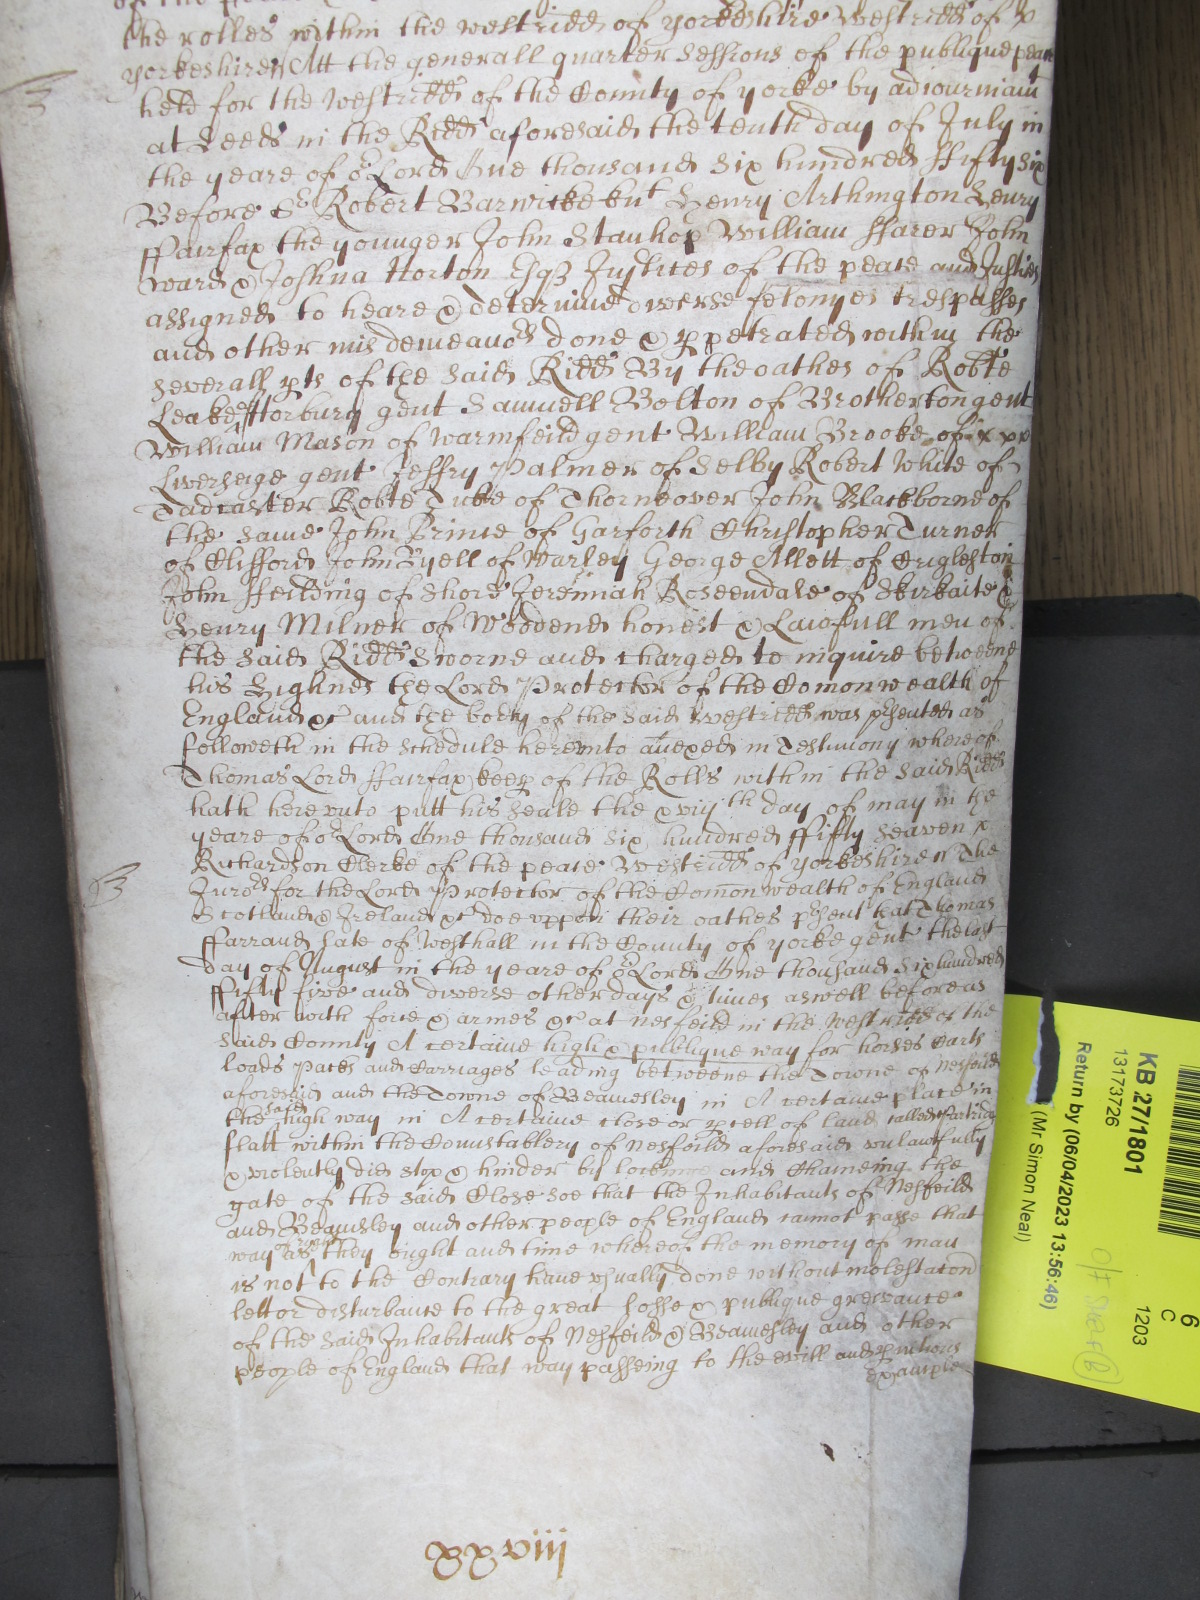 the rolles within the westridd of yorkeshire Westridd of
yorkeshire Att the generall quarter sessions of the publique peace
held for the westridd of the County of yorke by adiournmt
at Leeds in the Ridd aforesaid the tenth day of July in
the yeare of or Lord One thousand six hundred ffifty six
Before Sr Robert Barwicke knt Henry Arthington Henry
ffairfax the younger John Stanhop William ffarer John
ward & Joshua Horton Esqs Justices of the peace and Justices
assigned to heare & determine diverse felonyes trespasses
and other misdemeanors done & ppetrated within the
severall pts of the said Ridd By the oathes of Robte
Leake Horbury gent Samuell Bolton of Brotherton gent
William Mason of warmfeild gent William Brooke of
Liverseige gent Jeffry Palmer of Selby Robert White of
Tadcaster Robte Tuke of Thorneover John Blackborne of
the same John Prince of Garforth Christopher Turner
of Clifford John Ryell of Warley George Allett of Crigleston
John ffeilding of Shore Jeremiah Rosendale of Skirkaite &
Henry Milner of Woodend honest & Lawfull men of
the said Ridd sworne and charged to inquire betweene
his Highnes the Lord Protector of the Comonwealth of
England &c and the body of the said westridd was psented as
followeth in the schedule hereunto anexed in Testimony whereof
Thomas Lord ffairfax keep of the Rolls within the said Ridd
hath hereunto putt his seale the xviijth day of may in the
yeare of or Lord One thousand six hundred ffifty seaven
Richardson Clerke of the peace Westridd of yorkeshire The
Jurors for the Lord Protector of the Comonwealth of England
Scotland & Ireland &c doe uppon their oathes psent that Thomas
ffarrand late of Westhall in the County of yorke gent the last
day of August in the yeare of or Lord One thousand six hundred
ffifty five and diverse other days & times aswell before as
after with force & armes &c at Nesfeild in the Westridd of the
said County A certaine high & publique way for horses Carts
loads Packs and Carriages leading betweene the Towne of Nesfeild
aforesaid and the Towne of Beamesley in A certaine place in
the said high way in A certaine close or pcell of land called
flatt within the Connstablery of Nesfeild aforesaid unlawfully
& violently did stop & hinder by lockinge and Chaineing the
gate of the said Close soe that the Inhabitants of Nesfeild
and Beamsley and other people of England cannot passe that
way as of right they ought and time whereof the memory of man
is not to the Contrary have usually done without molestacon
lett or disturbance to the great losse & publique grevance
of the said Inhabitants of Nesfeild & Beamesley and other
people of England that way passeing to the evill and pnitious
Example
xxviij
KB 27/1801
13173726
Return by (06/04/2023 13:56:46)
(Mr Simon Neal)
6
C
1203